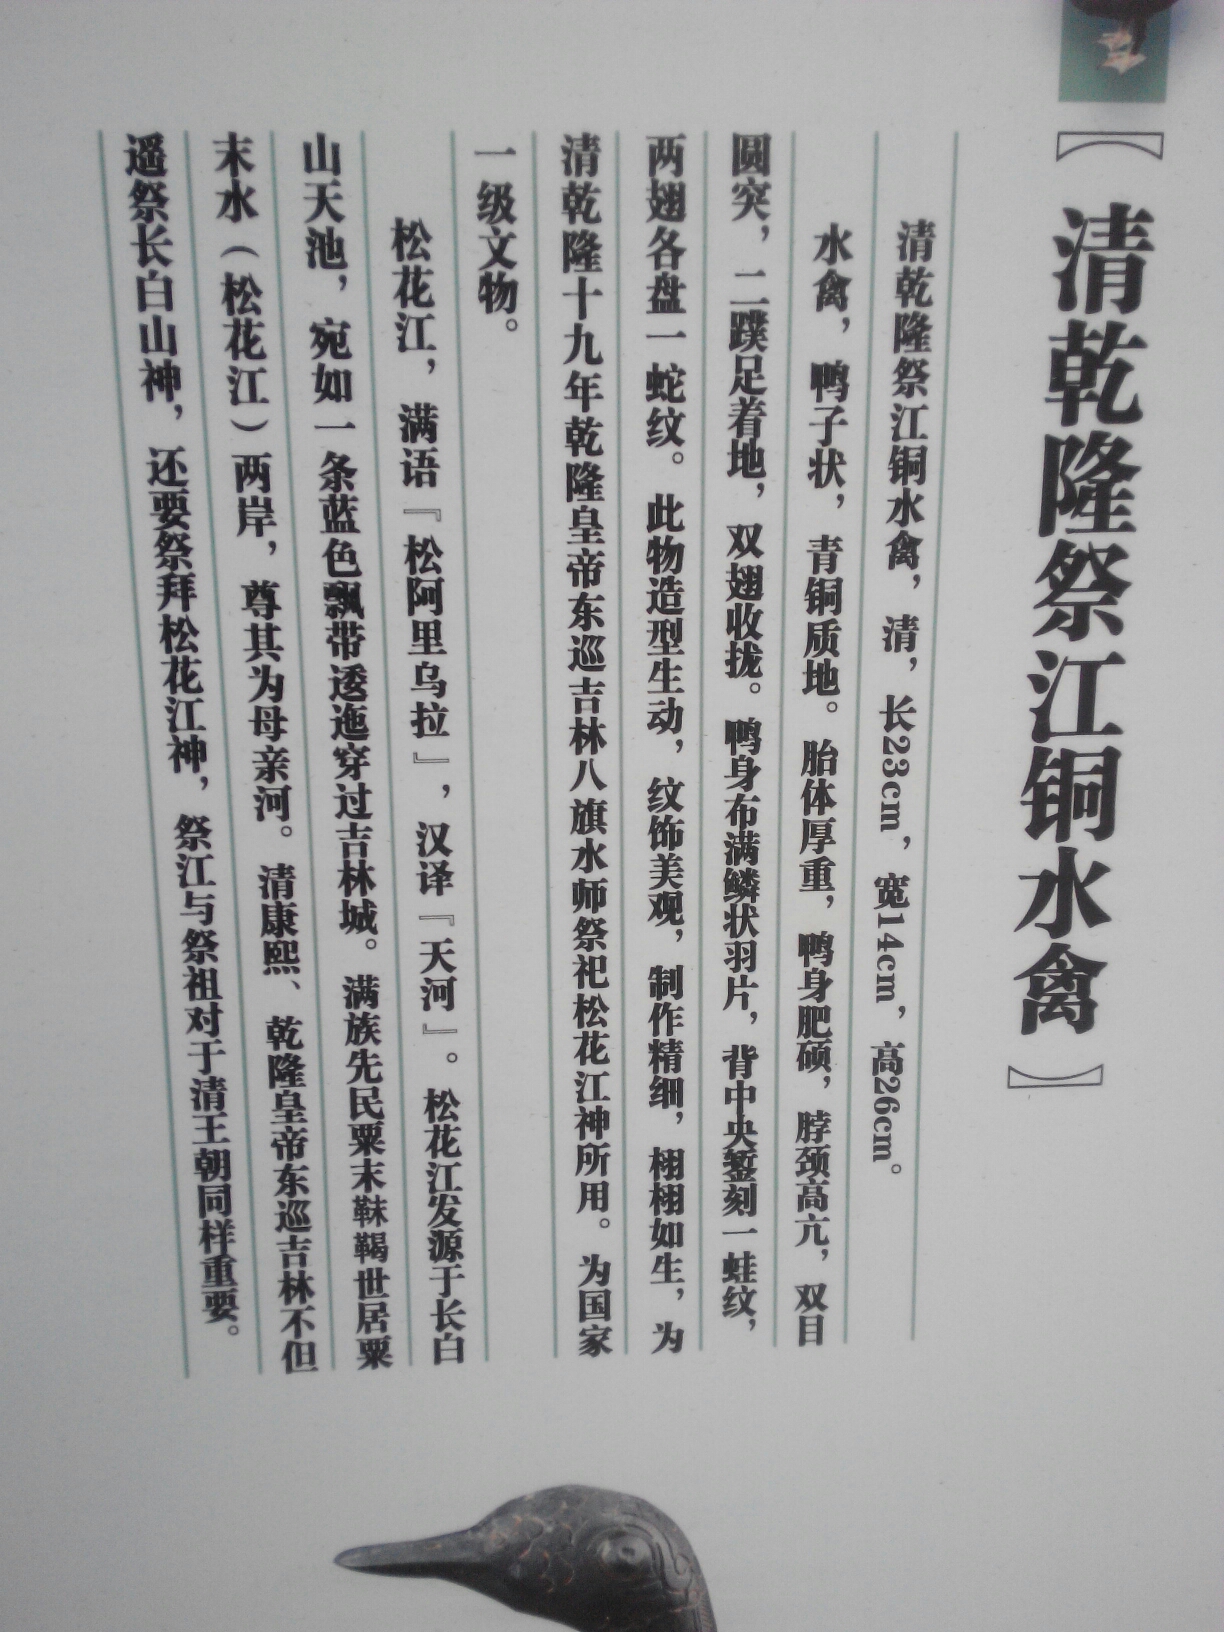 【清乾隆祭江铜水禽】
清乾隆祭江铜水禽，清，长23cm，宽14cm，高26cm。
水禽，鸭子状，青铜质地。胎体厚重，鸭身肥硕，脖颈高亢，双目
圆突，二蹼足着地，双翅收拢。鸭身布满鳞状羽片，背中央錾刻一蛙纹，
两翅各盘一蛇纹。此物造型生动，纹饰美观，制作精细，栩栩如生，为
清乾隆十九年乾隆皇帝东巡吉林八旗水师祭祀松花江神所用。为国家
一级文物。
松花江，满语『松阿里乌拉』，汉译『天河』。松花江发源于长白
山天池，宛如一条蓝色飘带逶迤穿过吉林城。满族先民粟末靺鞨世居粟
末水（松花江）两岸，尊其为母亲河。清康熙、乾隆皇帝东巡吉林不但
遥祭长白山神，还要祭拜松花江神，祭江与祭祖对于清王朝同样重要。